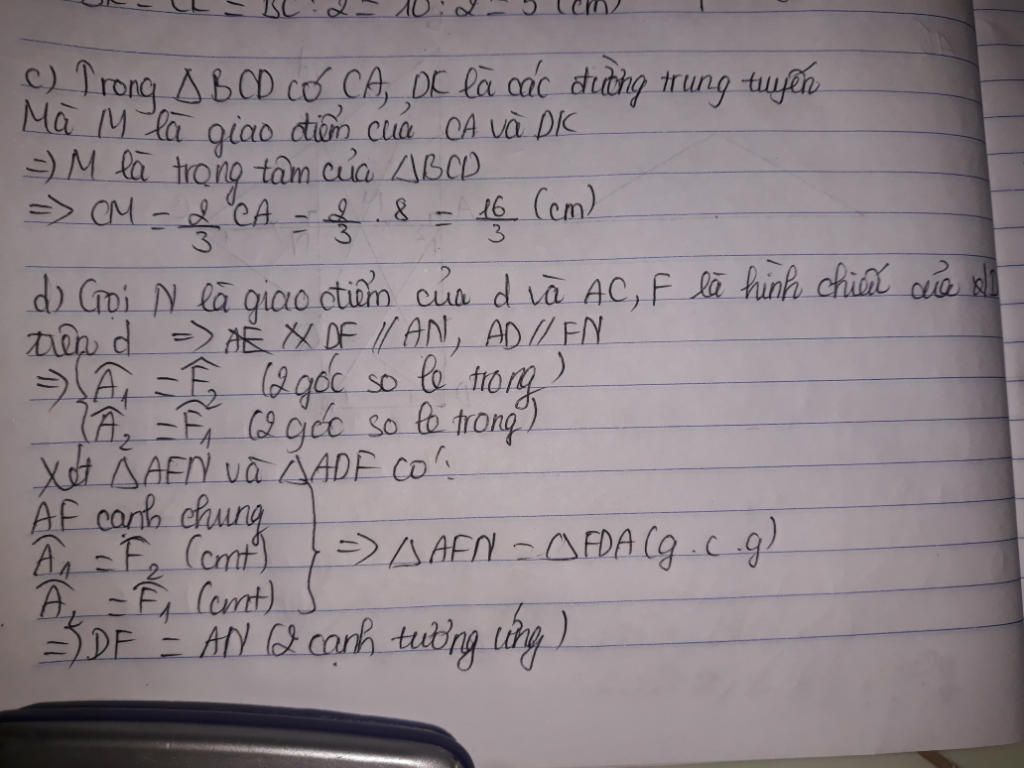 = BC : 2 = 10 : 2 = 5 (cm)
c) Trong ΔBCD có CA, DK là các đường trung tuyến
Mà M là giao điểm của CA và DK
=> M là trọng tâm của ΔBCD
=> CM = 2/3 CA = 2/3 . 8 = 16/3 (cm)
d) Gọi N là giao điểm của d và AC, F là hình chiếu của D
trên d => DF // AN, AD // FN
=> { Â₁ = F̂₂ (2 góc so le trong)
{ Â₂ = F̂₁ (2 góc so le trong)
Xét ΔAFN và ΔADF có:
AF cạnh chung
Â₁ = F̂₂ (cmt) } => ΔAFN = ΔFDA (g.c.g)
Â₂ = F̂₁ (cmt)
=> DF = AN (2 cạnh tương ứng)